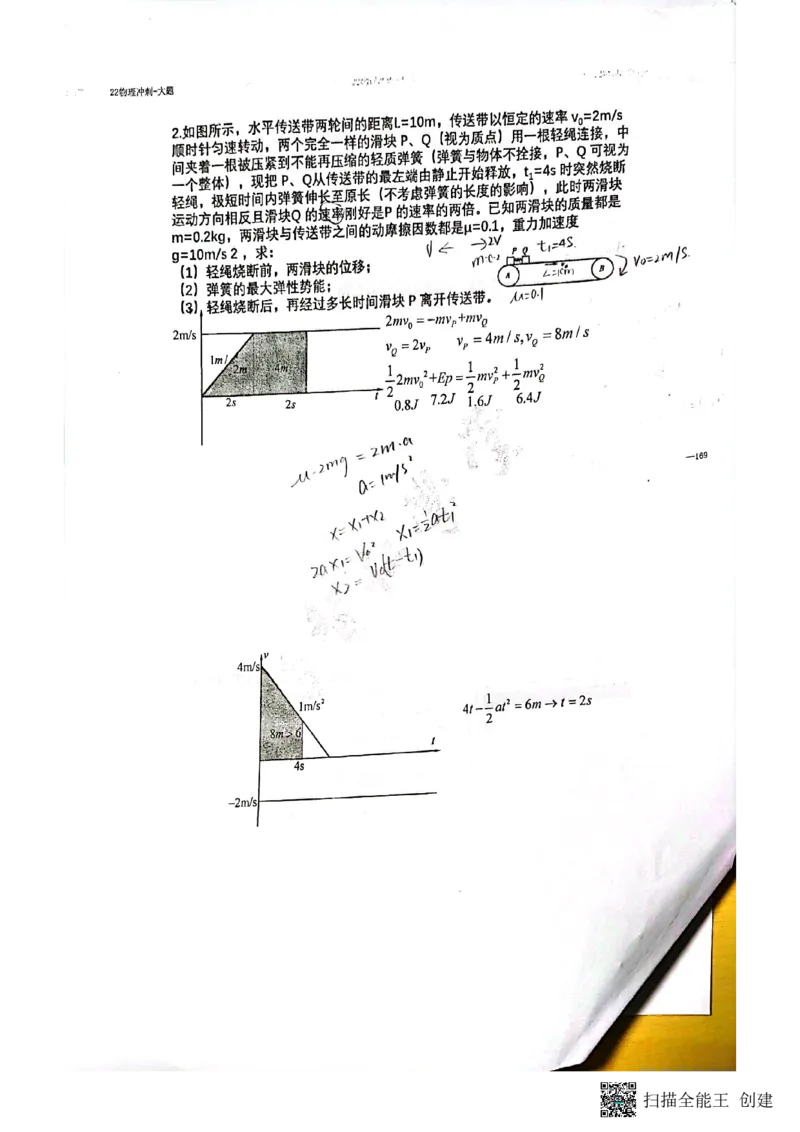 22物理冲刺-大题
2.如图所示，水平传送带两轮间的距离L=10m，传送带以恒定的速率 v₀=2m/s
顺时针匀速转动，两个完全一样的滑块 P、Q（视为质点）用一根轻绳连接，中
间夹着一根被压紧到不能再压缩的轻质弹簧（弹簧与物体不拴接，P、Q 可视为
一个整体），现把 P、Q从传送带的最左端由静止开始释放，t₁=4s 时突然烧断
轻绳，极短时间内弹簧伸长至原长（不考虑弹簧的长度的影响），此时两滑块
运动方向相反且滑块Q 的速率刚好是P 的速率的两倍。已知两滑块的质量都是
m=0.2kg，两滑块与传送带之间的动摩擦因数都是μ=0.1，重力加速度
g=10m/s 2 ，求：
V ← → 2V
P Q t₁=4S.
m=0.2
A L=10m B V₀=2m/S.
（1）轻绳烧断前，两滑块的位移；
（2）弹簧的最大弹性势能；
（3）轻绳烧断后，再经过多长时间滑块 P 离开传送带。
μ=0.1
2m/s
1m/
2m 4m
2s 2s t
2mv₀ = −mv_P+mv_Q
v_Q = 2v_P v_P = 4m/s, v_Q = 8m/s
1/2 2mv₀²+Ep = 1/2 mv_P² + 1/2 mv_Q²
0.8J 7.2J 1.6J 6.4J
—169
μ·2mg = 2m·a
a = 1m/s²
x = x₁+x₂ x₁ = ½at₁²
2ax₁ = V₀²
x₂ = V₀(t−t₁)
v
4m/s
1m/s²
8m > 6
t
4s
−2m/s
4t − 1/2 at² = 6m → t = 2s
扫描全能王 创建